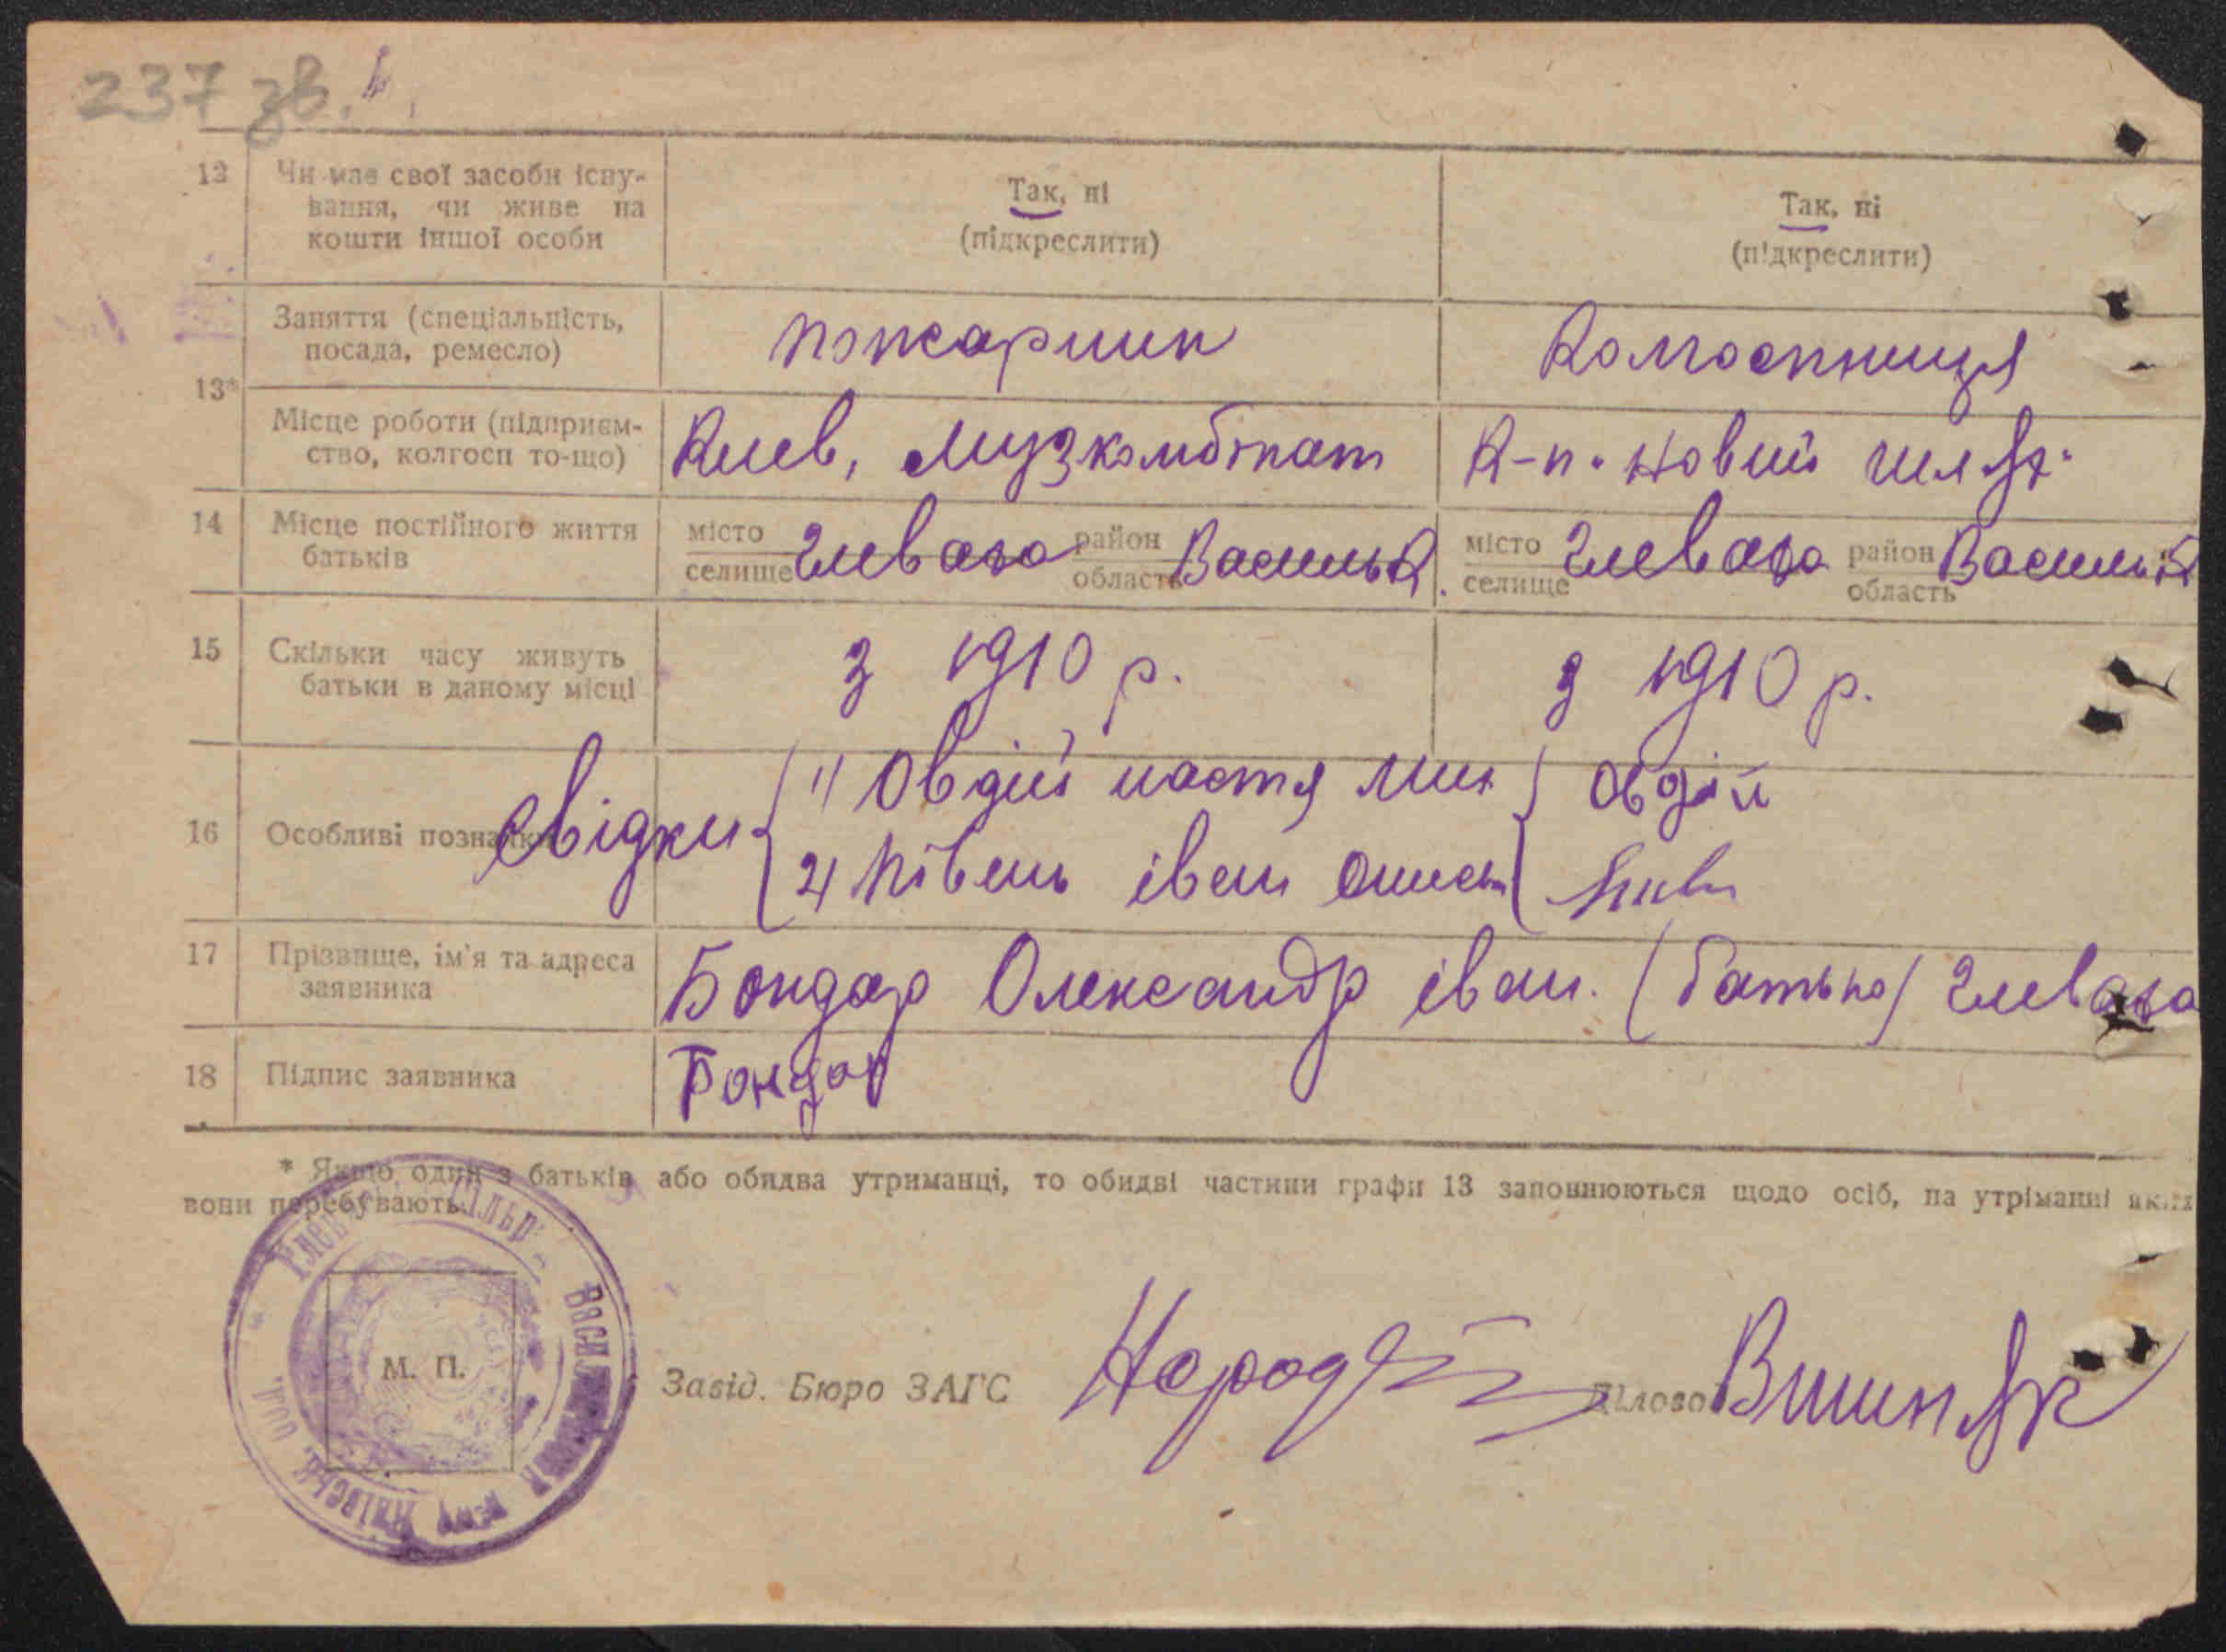 237 зв.
12 Чи має свої засоби існу-
вання, чи живе на
кошти іншої особи
Так, ні
(підкреслити)
Так, ні
(підкреслити)
13*
Заняття (спеціальність,
посада, ремесло)
пожарник
Колгоспниця
Місце роботи (підприєм-
ство, колгосп то-що)
Киев, Музкомбінат
К-п. Новий шлях
14 Місце постійного життя
батьків
місто
селище Глеваха район
область Васильк.
місто
селище Глеваха район
область Васильк
15 Скільки часу живуть
батьки в даному місці
з 1910 р.
з 1910 р.
16 Особливі познаки
свідки
1) Овдій настя Мик
Овдій
2) Півень іван
17 Прізвище, ім'я та адреса
заявника
Бондар Олександр іван. (батько) Глеваха
18 Підпис заявника
Бондар
* Якщо один з батьків або обидва утриманці, то обидві частини графи 13 заповнюються щодо осіб, на утріманні яких
вони перебувають.
М. П.
Завід. Бюро ЗАГС
Діловод Вишняк